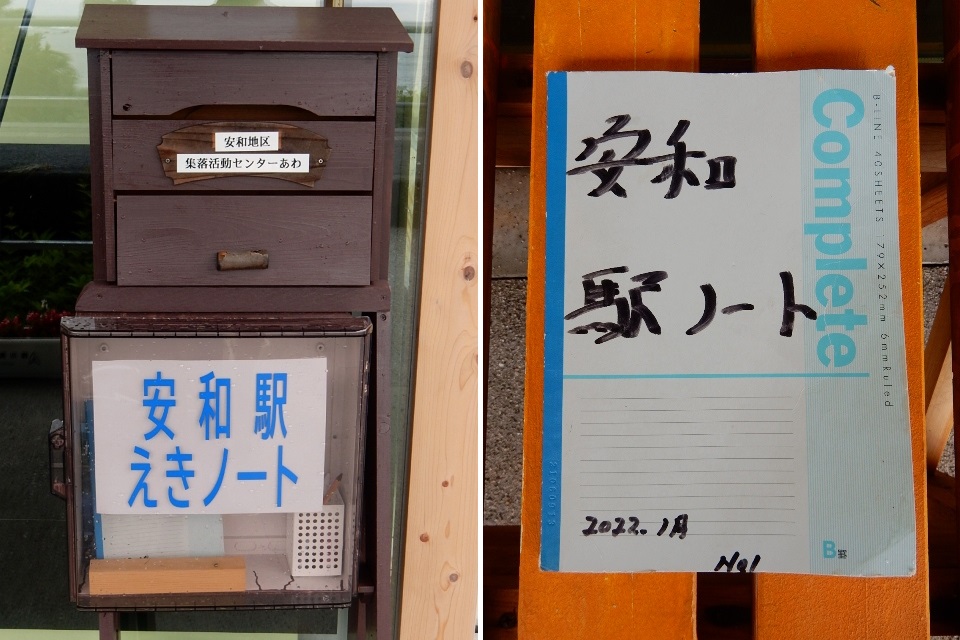 安和地区
集落活動センターあわ
安和駅
えきノート
安和
駅ノート
Complete
B-LINE 40SHEETS 179×252mm 6mmRuled
2022.1月
No1
B罫